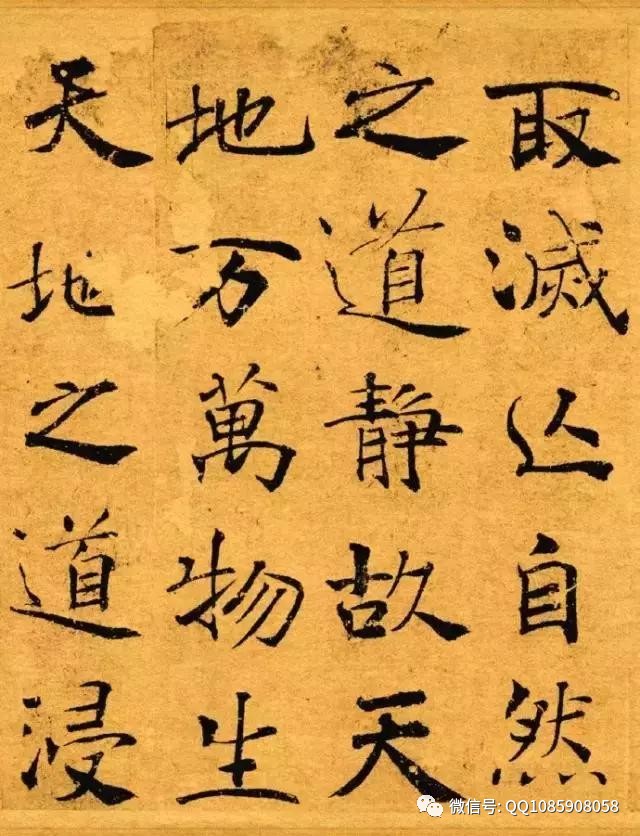 取滅亾自然
之道靜故天
地万萬物生
天地之道浸
微信号: QQ1085908058